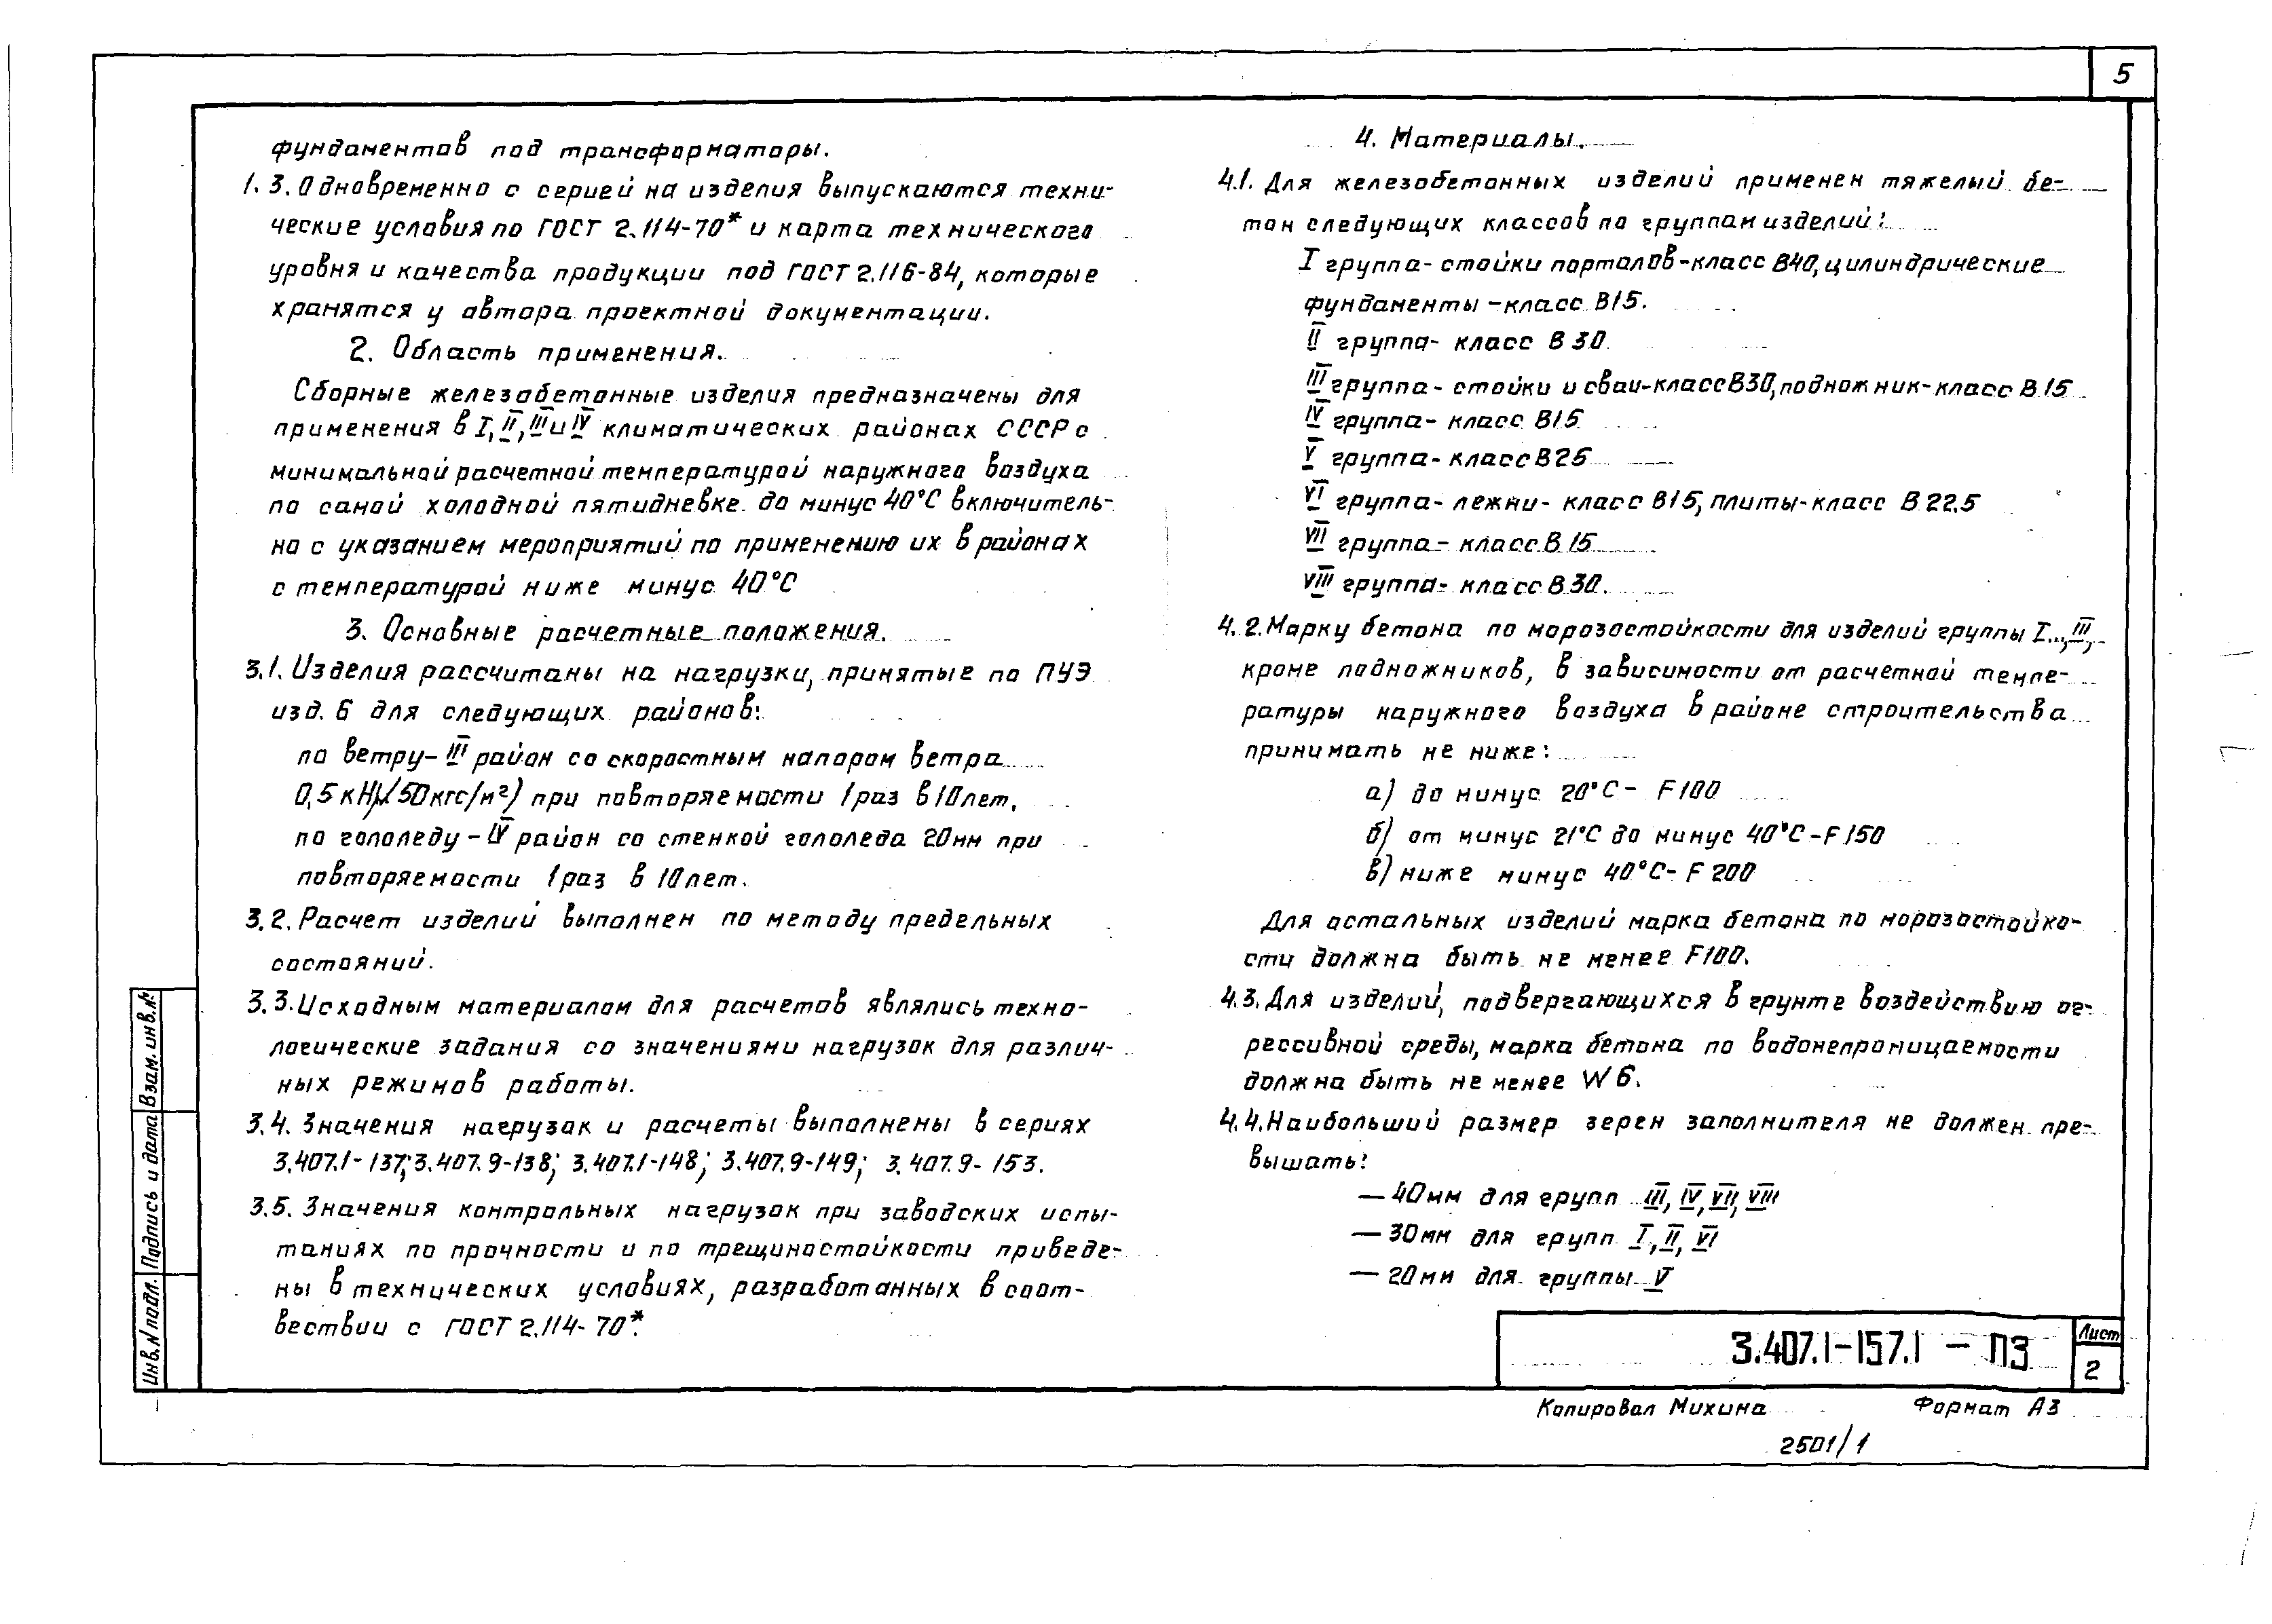 5
фундаментов под трансформаторы.
1.3. Одновременно с серией на изделия выпускаются техни-
ческие условия по ГОСТ 2.114-70* и карта технического
уровня и качества продукции под ГОСТ 2.116-84, которые
хранятся у автора проектной документации.
2. Область применения.
Сборные железобетонные изделия предназначены для
применения в I, II, III и IV климатических районах СССР с
минимальной расчетной температурой наружного воздуха
по самой холодной пятидневке до минус 40°С включитель-
но с указанием мероприятий по применению их в районах
с температурой ниже минус 40°С
3. Основные расчетные положения.
3.1. Изделия рассчитаны на нагрузки, принятые по ПУЭ
изд. 6 для следующих районов:
по ветру - III район со скоростным напором ветра
0,5 кН/м² (50кгс/м²) при повторяемости 1 раз в 10 лет,
по гололеду - IV район со стенкой гололеда 20мм при
повторяемости 1 раз в 10 лет.
3.2. Расчет изделий выполнен по методу предельных
состояний.
3.3. Исходным материалом для расчетов являлись техно-
логические задания со значениями нагрузок для различ-
ных режимов работы.
3.4. Значения нагрузок и расчеты выполнены в сериях
3.407.1-137; 3.407.9-138; 3.407.1-148; 3.407.9-149; 3.407.9-153.
3.5. Значения контрольных нагрузок при заводских испы-
таниях по прочности и по трещиностойкости приведе-
ны в технических условиях, разработанных в соот-
вествии с ГОСТ 2.114-70*.
4. Материалы.
4.1. Для железобетонных изделий применен тяжелый бе-
тон следующих классов по группам изделий:
I группа - стойки порталов - класс В40, цилиндрические
фундаменты - класс В15.
II группа - класс В30
III группа - стойки и сваи - класс В30, подножник - класс В15
IV группа - класс В15
V группа - класс В25
VI группа - лежни - класс В15, плиты - класс В 22.5
VII группа - класс В15
VIII группа - класс В30.
4.2. Марку бетона по морозостойкости для изделий группы I..., III,
кроме подножников, в зависимости от расчетной темпе-
ратуры наружного воздуха в районе строительства
принимать не ниже:
а) до минус 20°С - F100
б) от минус 21°С до минус 40°С - F150
в) ниже минус 40°С - F200
Для остальных изделий марка бетона по морозостойко-
сти должна быть не менее F100.
4.3. Для изделий, подвергающихся в грунте воздействию аг-
рессивной среды, марка бетона по водонепроницаемости
должна быть не менее W6.
4.4. Наибольший размер зерен заполнителя не должен пре-
вышать:
— 40мм для групп III, IV, VII, VIII
— 30мм для групп I, II, VI
— 20мм для группы V
Инв. N подл. Подпись и дата Взам. инв. №
3.407.1-157.1 - ПЗ
Лист
2
Копировал Михина Формат А3
2501/1